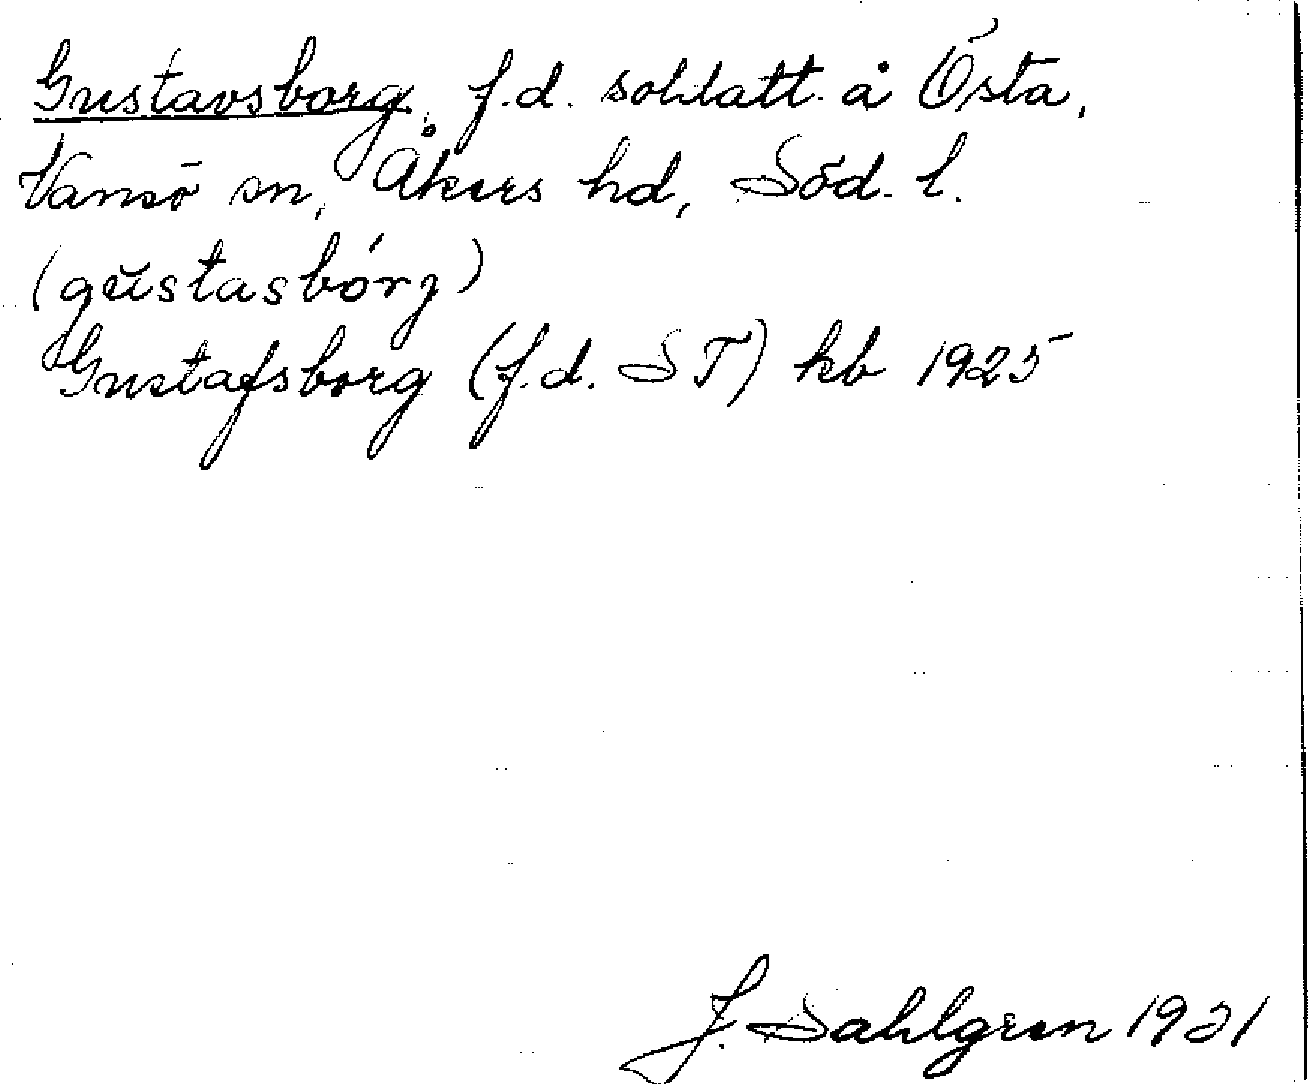 Gustavsborg, f.d. soldatt. å Östa,
Vansö sn, Åkers hd, Söd. l.
(gŭstasbórj)
Gustafsborg (f.d. ST) kb 1925
J. Sahlgren 1931